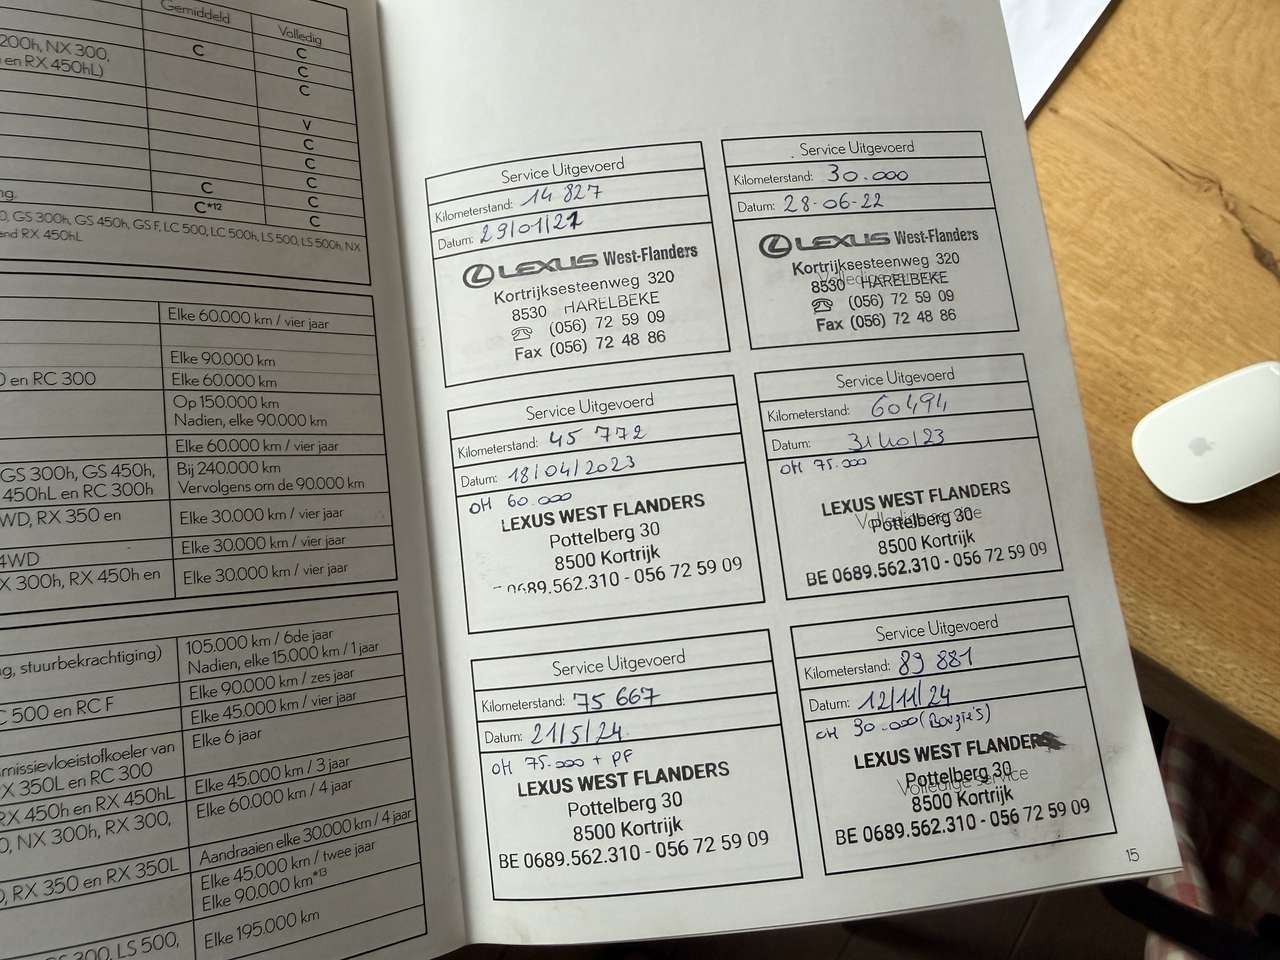 Gemiddeld
Volledig
200h, NX 300,
en RX 450hL)
C
C
C
C
V
C
C
C
ng.
C
C
C*12
C
0, GS 300h, GS 450h, GS F, LC 500, LC 500h, LS 500, LS 500h, NX
end RX 450hL
Elke 60.000 km / vier jaar
Elke 90.000 km
en RC 300
Elke 60.000 km
Op 150.000 km
Nadien, elke 90.000 km
Elke 60.000 km / vier jaar
GS 300h, GS 450h,
450hL en RC 300h
Bij 240.000 km
Vervolgens om de 90.000 km
WD, RX 350 en
Elke 30.000 km / vier jaar
4WD
Elke 30.000 km / vier jaar
X 300h, RX 450h en
Elke 30.000 km / vier jaar
ng, stuurbekrachtiging)
105.000 km / 6de jaar
Nadien, elke 15.000 km / 1 jaar
C 500 en RC F
Elke 90.000 km / zes jaar
Elke 45.000 km / vier jaar
missievloeistofkoeler van
X 350L en RC 300
Elke 6 jaar
RX 450h en RX 450hL
Elke 45.000 km / 3 jaar
0, NX 300h, RX 300,
Elke 60.000 km / 4 jaar
Aandraaien elke 30.000 km / 4 jaar
0, RX 350 en RX 350L
Elke 45.000 km / twee jaar
Elke 90.000 km*13
GS 300, LS 500,
Elke 195.000 km
Service Uitgevoerd
Kilometerstand: 14 827
Datum: 29/01/21
LEXUS West-Flanders
Kortrijksesteenweg 320
8530 HARELBEKE
☎ (056) 72 59 09
Fax (056) 72 48 86
Service Uitgevoerd
Kilometerstand: 30.000
Datum: 28-06-22
LEXUS West-Flanders
Kortrijksesteenweg 320
Volledige
8530 HARELBEKE
☎ (056) 72 59 09
Fax (056) 72 48 86
Service Uitgevoerd
Kilometerstand: 45 772
Datum: 18/04/2023
OH 60.000
LEXUS WEST FLANDERS
Pottelberg 30
8500 Kortrijk
0689.562.310 - 056 72 59 09
Service Uitgevoerd
Kilometerstand: 60494
Datum: 31/10/23
OH 75.000
LEXUS WEST FLANDERS
Volledige service
Pottelberg 30
8500 Kortrijk
BE 0689.562.310 - 056 72 59 09
Service Uitgevoerd
Kilometerstand: 75 667
Datum: 21/5/24
OH 75.000 + PF
LEXUS WEST FLANDERS
Pottelberg 30
8500 Kortrijk
BE 0689.562.310 - 056 72 59 09
Service Uitgevoerd
Kilometerstand: 89 881
Datum: 12/11/24
OH 30.000 (Bougie's)
LEXUS WEST FLANDERS
Pottelberg 30
Volledige service
8500 Kortrijk
BE 0689.562.310 - 056 72 59 09
15